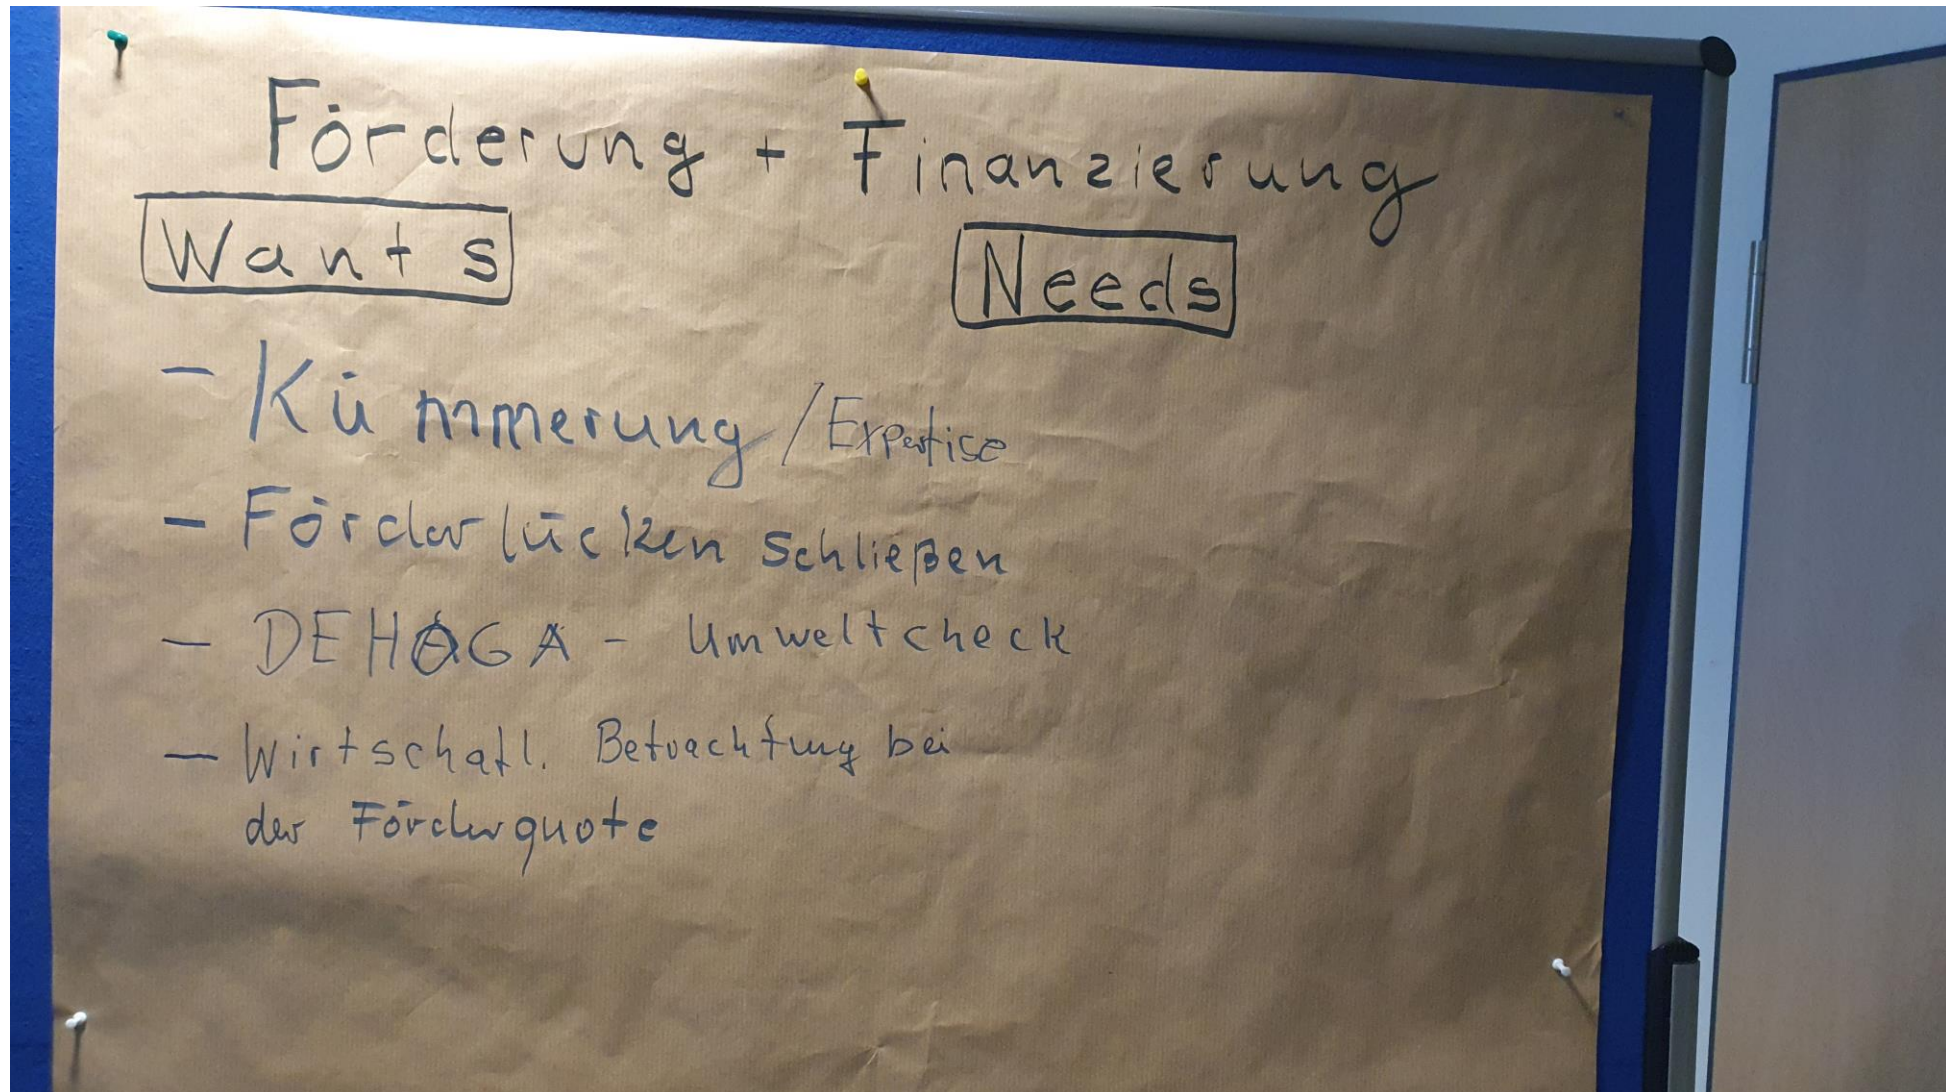 Förderung + Finanzierung
Wants Needs
- Kümmerung / Expertise
- Förderlücken schließen
- DEHOGA - Umweltcheck
- Wirtschaftl. Betrachtung bei
der Förderquote